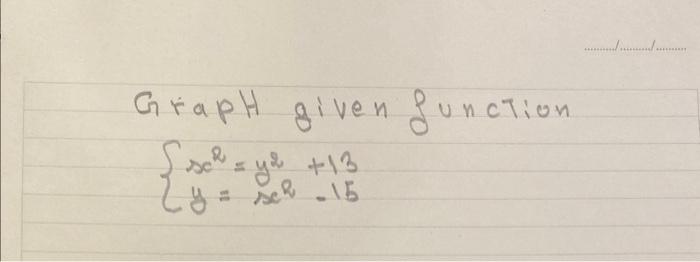 GrapH given function
{ x² = y² +13
y = x² -15